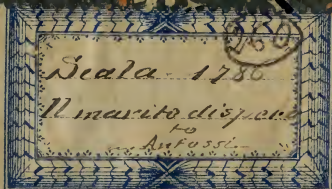 760
Scala - 1786
Il marito disperato
to
Anfossi